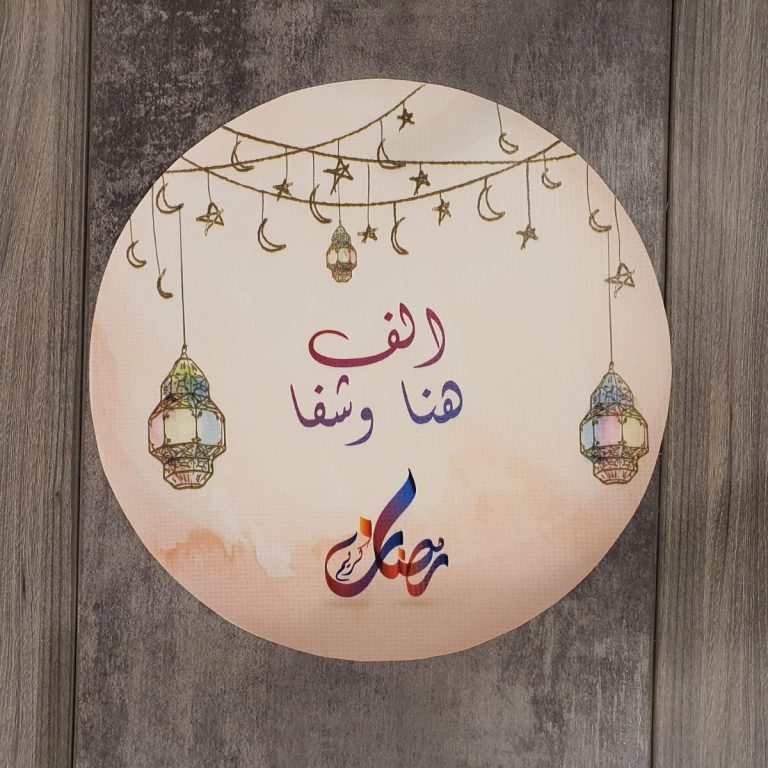 الف
هنا وشفا
رمضان كريم